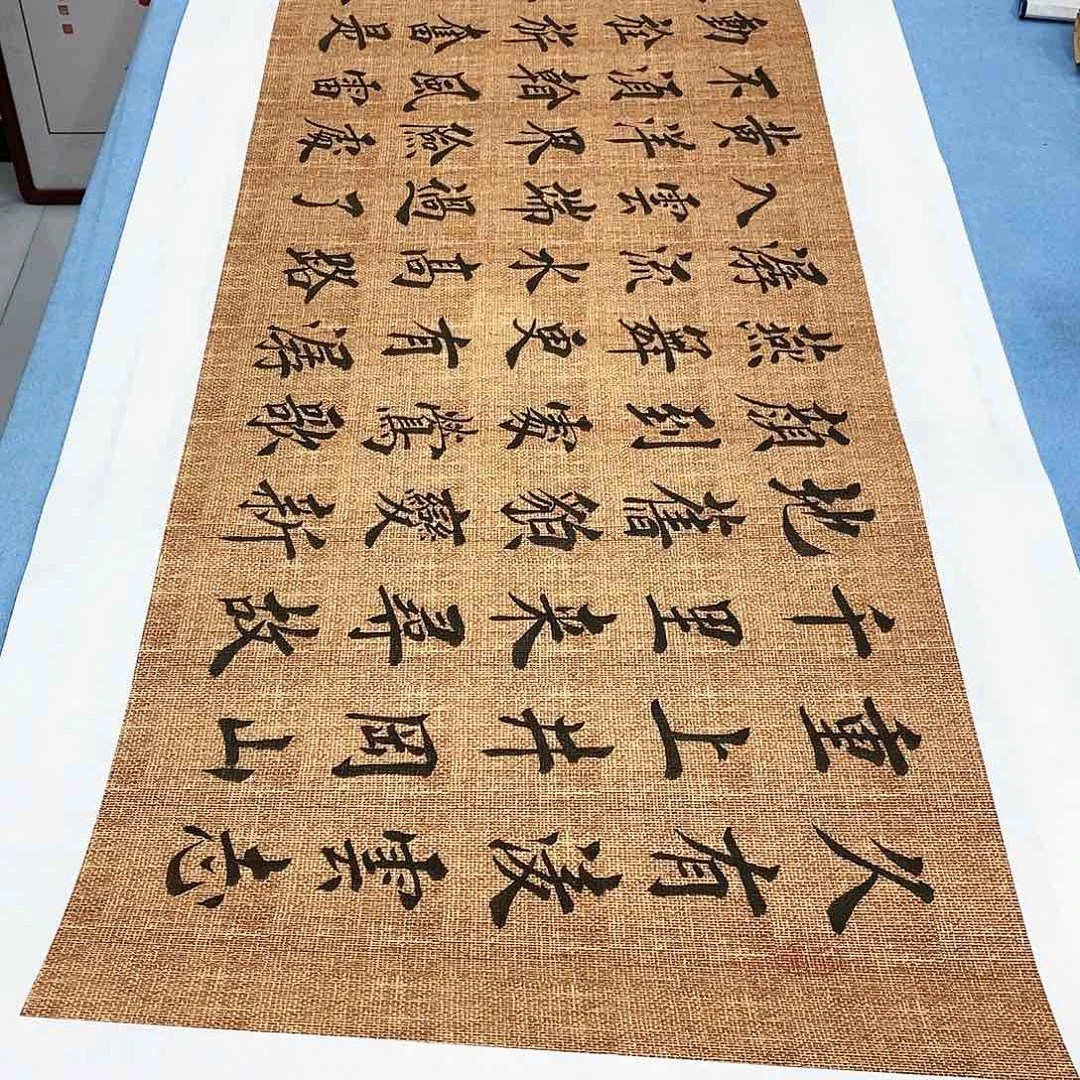 久有凌雲志
重上井岡山
千里来尋故
地舊貌變新
顏到處鶯歌
燕舞更有潺
潺流水高路
入雲端過了
黄洋界險處
不須看風雷
動旌旗奮是